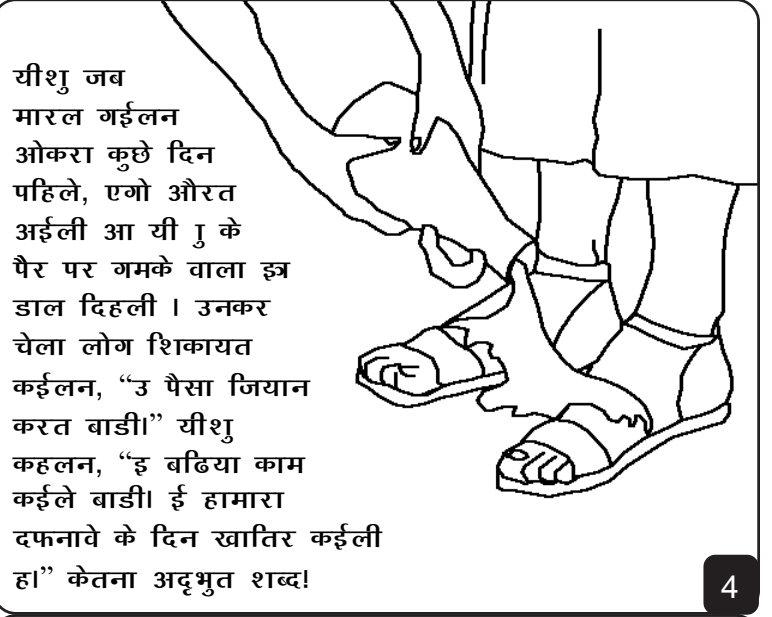 यीशु जब
मारल गईलन
ओकरा कुछे दिन
पहिले, एगो औरत
अईली आ यी ु के
पैर पर गमके वाला इत्र
डाल दिहली । उनकर
चेला लोग शिकायत
कईलन, “उ पैसा जियान
करत बाडी।” यीशु
कहलन, “इ बढिया काम
कईले बाडी। ई हामारा
दफनावे के दिन खातिर कईली
ह।” केतना अदृभुत शब्द!
4